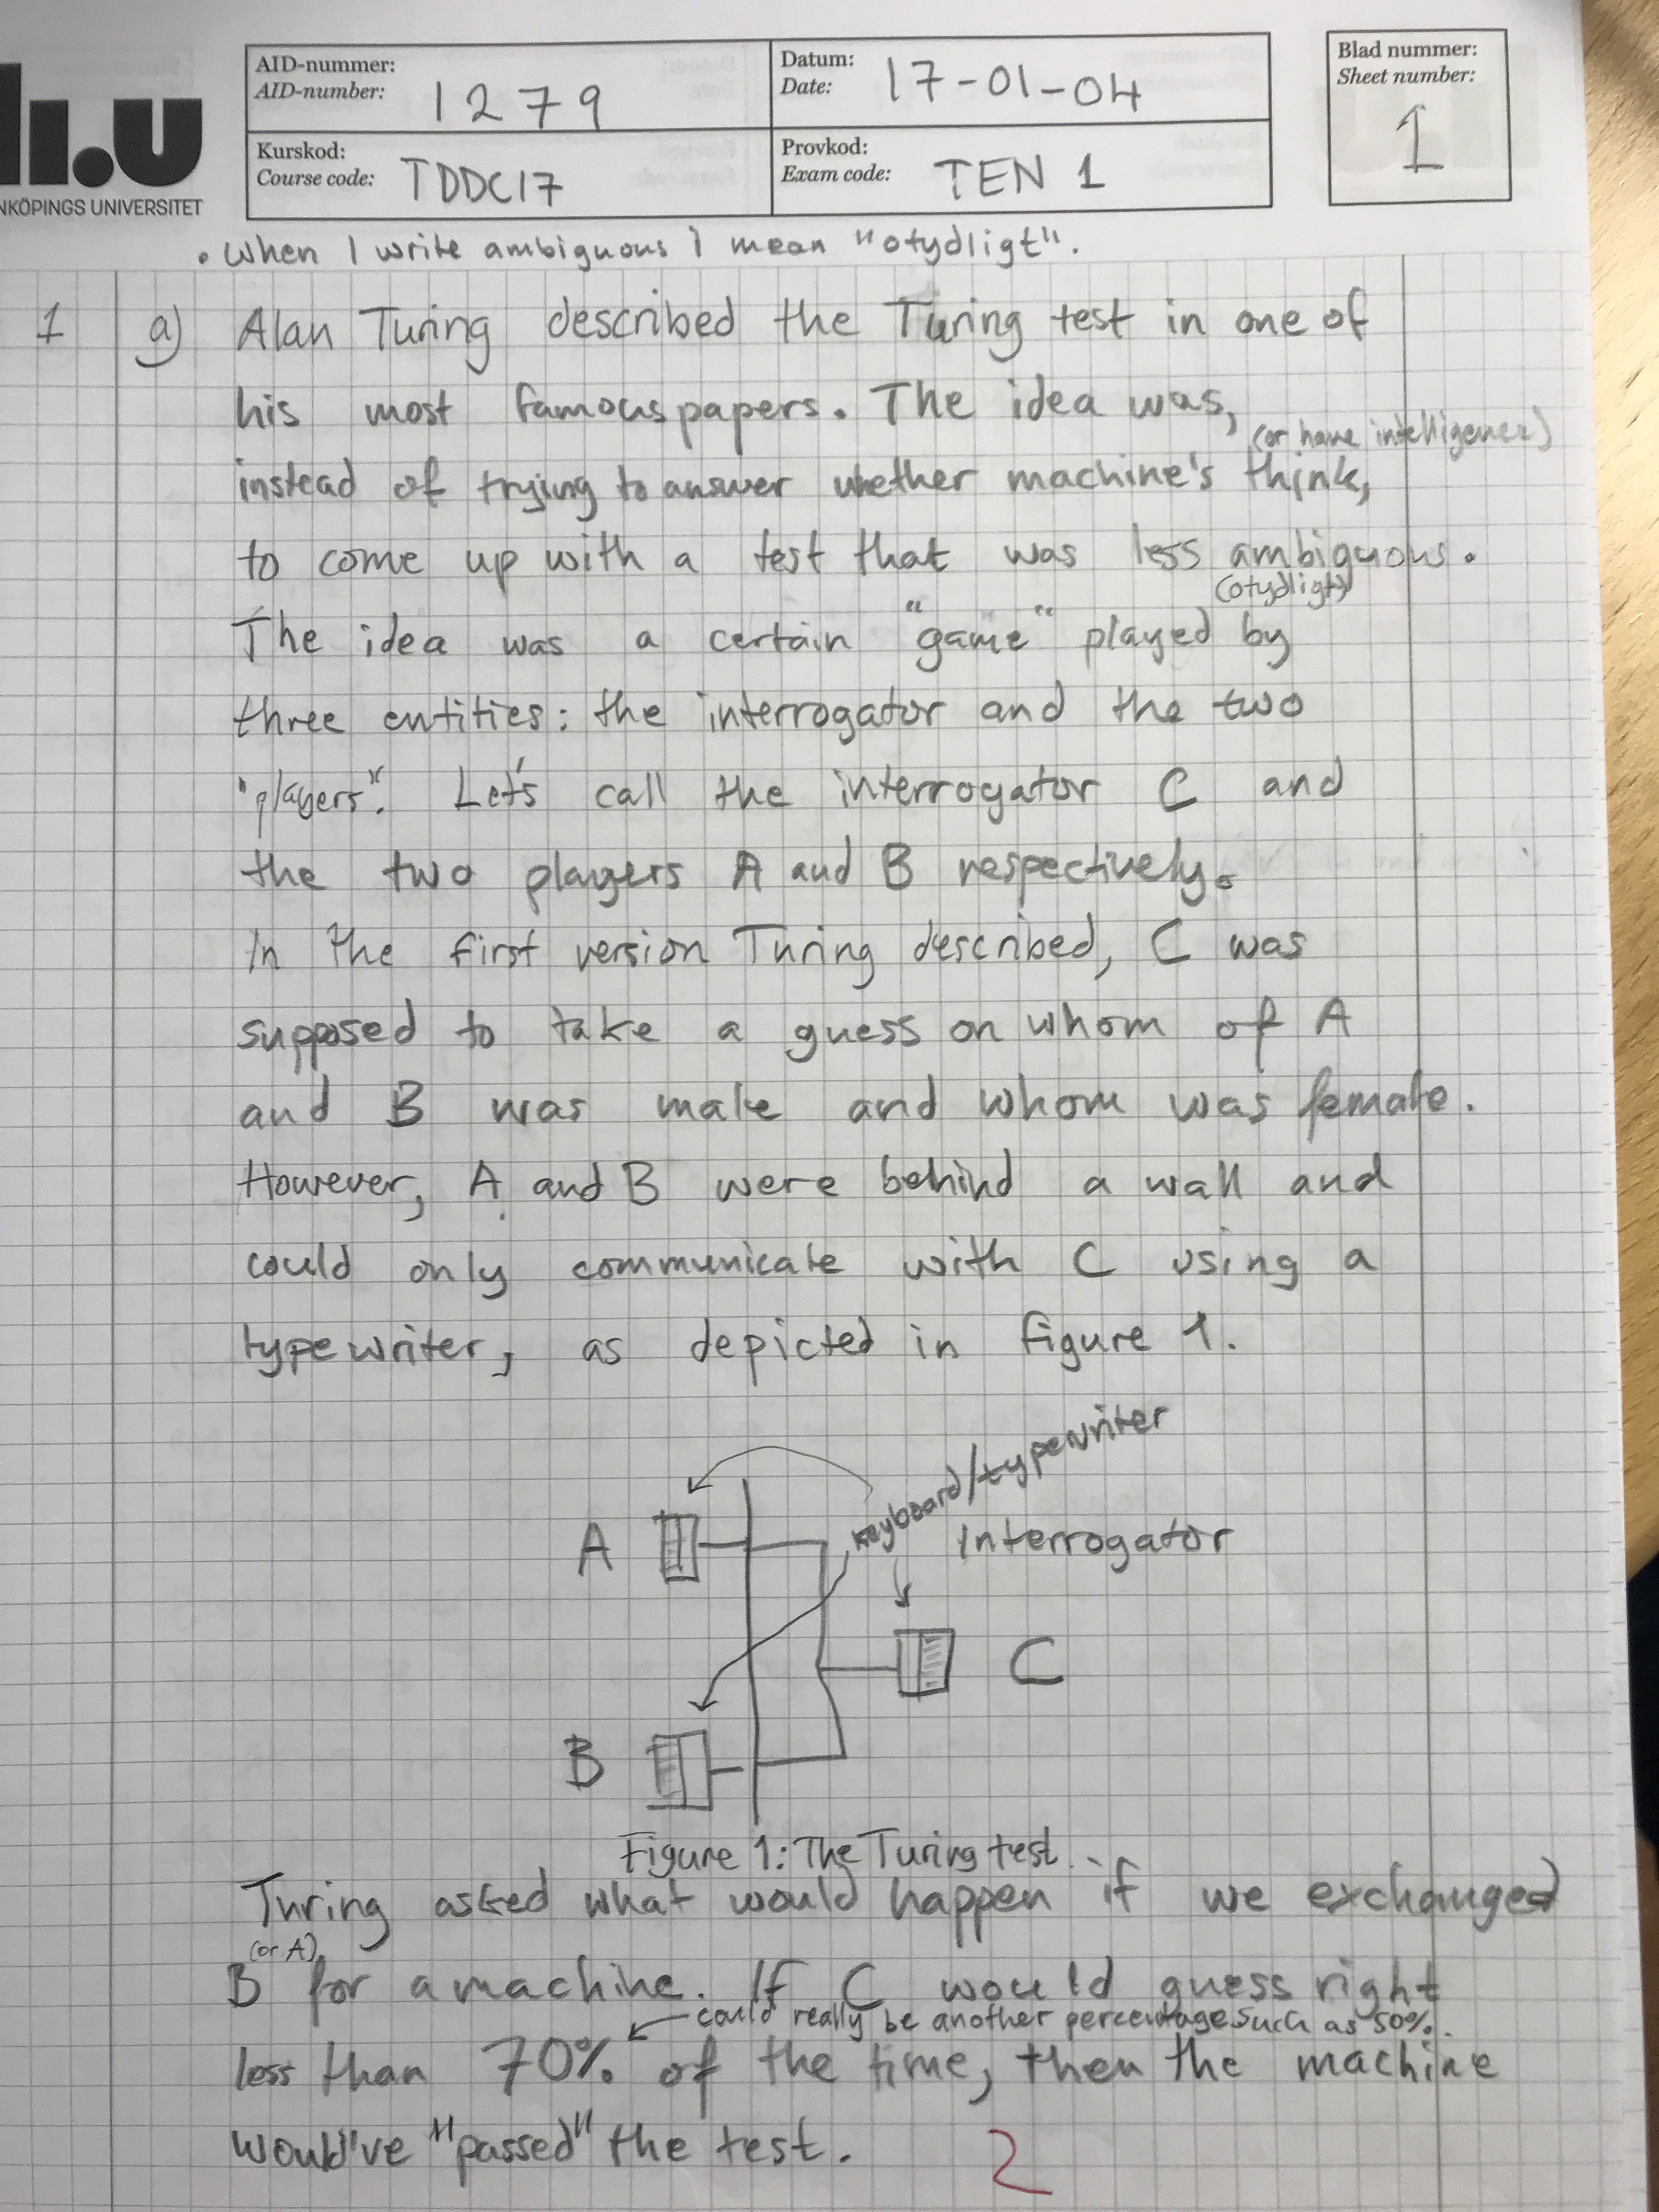 li.u
NKÖPINGS UNIVERSITET
AID-nummer:
AID-number: 1279
Datum:
Date: 17-01-04
Blad nummer:
Sheet number:
1
Kurskod:
Course code: TDDC17
Provkod:
Exam code: TEN 1
• When I write ambiguous I mean "otydligt".
1 a) Alan Turing described the Turing test in one of
his most famous papers. The idea was,
(or have intelligence)
instead of trying to answer whether machine's think,
to come up with a test that was less ambiguous.
(otydligt)
The idea was a certain "game" played by
three entities: the interrogator and the two
"players". Let's call the interrogator C and
the two players A and B respectively.
In the first version Turing described, C was
supposed to take a guess on whom of A
and B was male and whom was female.
However, A and B were behind a wall and
could only communicate with C using a
typewriter, as depicted in figure 1.
keyboard/typewriter
A
Interrogator
C
B
Figure 1: The Turing test.
Turing asked what would happen if we exchanged
(or A)
B for a machine. If C would guess right
could really be another percentage such as 50%.
less than 70% of the time, then the machine
would've "passed" the test.
2